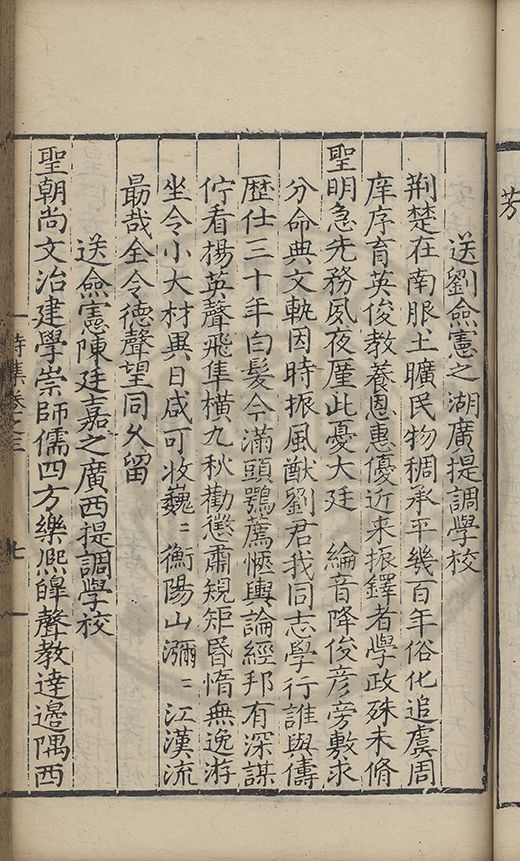 芳
送劉僉憲之湖廣提調學校
荆楚在南服土曠民物稠承平幾百年俗化追虞周
庠序育英俊教養恩惠優近来振鐸者學政殊未脩
聖明急先務夙夜厪此憂大廷 綸音降俊彦旁敷求
分命典文軌因時振風猷劉君我同志學行誰與儔
歴仕三十年白髮今滿頭鶚薦愜輿論經邦有深謀
佇看揚英聲飛隼橫九秋勸懲肅規矩昏惰無逸游
坐令小大材異日咸可收巍〻衡陽山瀰〻江漢流
勗哉全令德聲望同乆留
送僉憲陳廷嘉之廣西提調學校
聖朝尚文治建學崇師儒四方樂熈皥聲教逹邊隅西
詩集卷之三
七